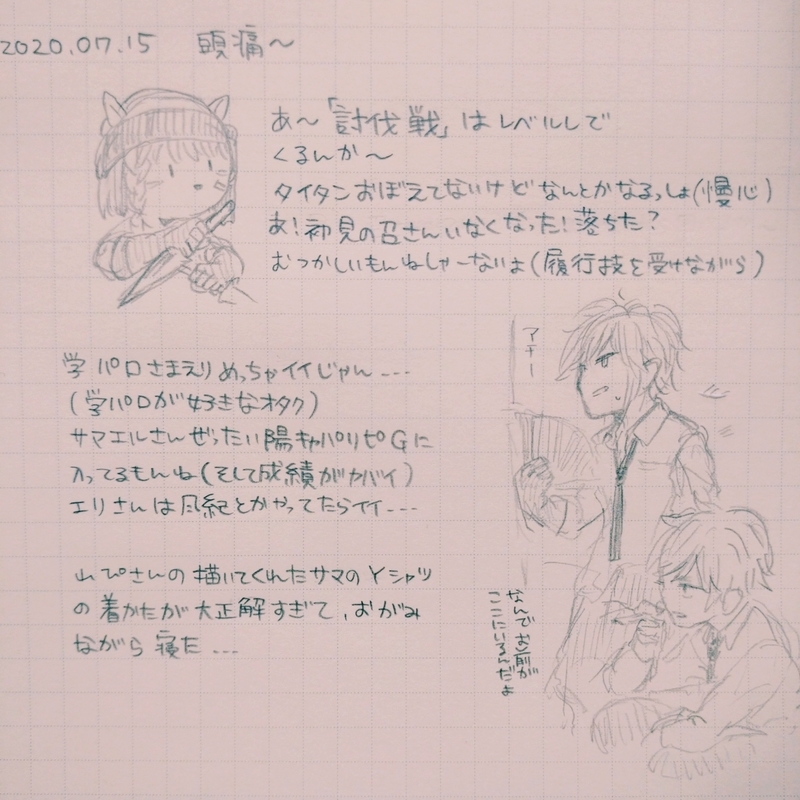 2020.07.15 頭痛〜
あ〜「討伐戦」はレベルしで
くるんか〜
タイタンおぼえてないけどなんとかなるっしょ(慢心)
あ!初見の召さんいなくなった!落ちた?
むつかしいもんねしゃーないよ(履行技を受けながら)
アチー
学パロさまえりめっちゃイイじゃん...
(学パロが好きなオタク)
サマエルさんぜったい陽キャパリピGに
入ってるもんね(そして成績がヤバイ)
エリさんは風紀とかやってたらイイ...
なんでお前が
ここにいるんだよ
山ぴさんの描いてくれたサマのYシャツ
の着かたが大正解すぎて、おがみ
ながら寝た...